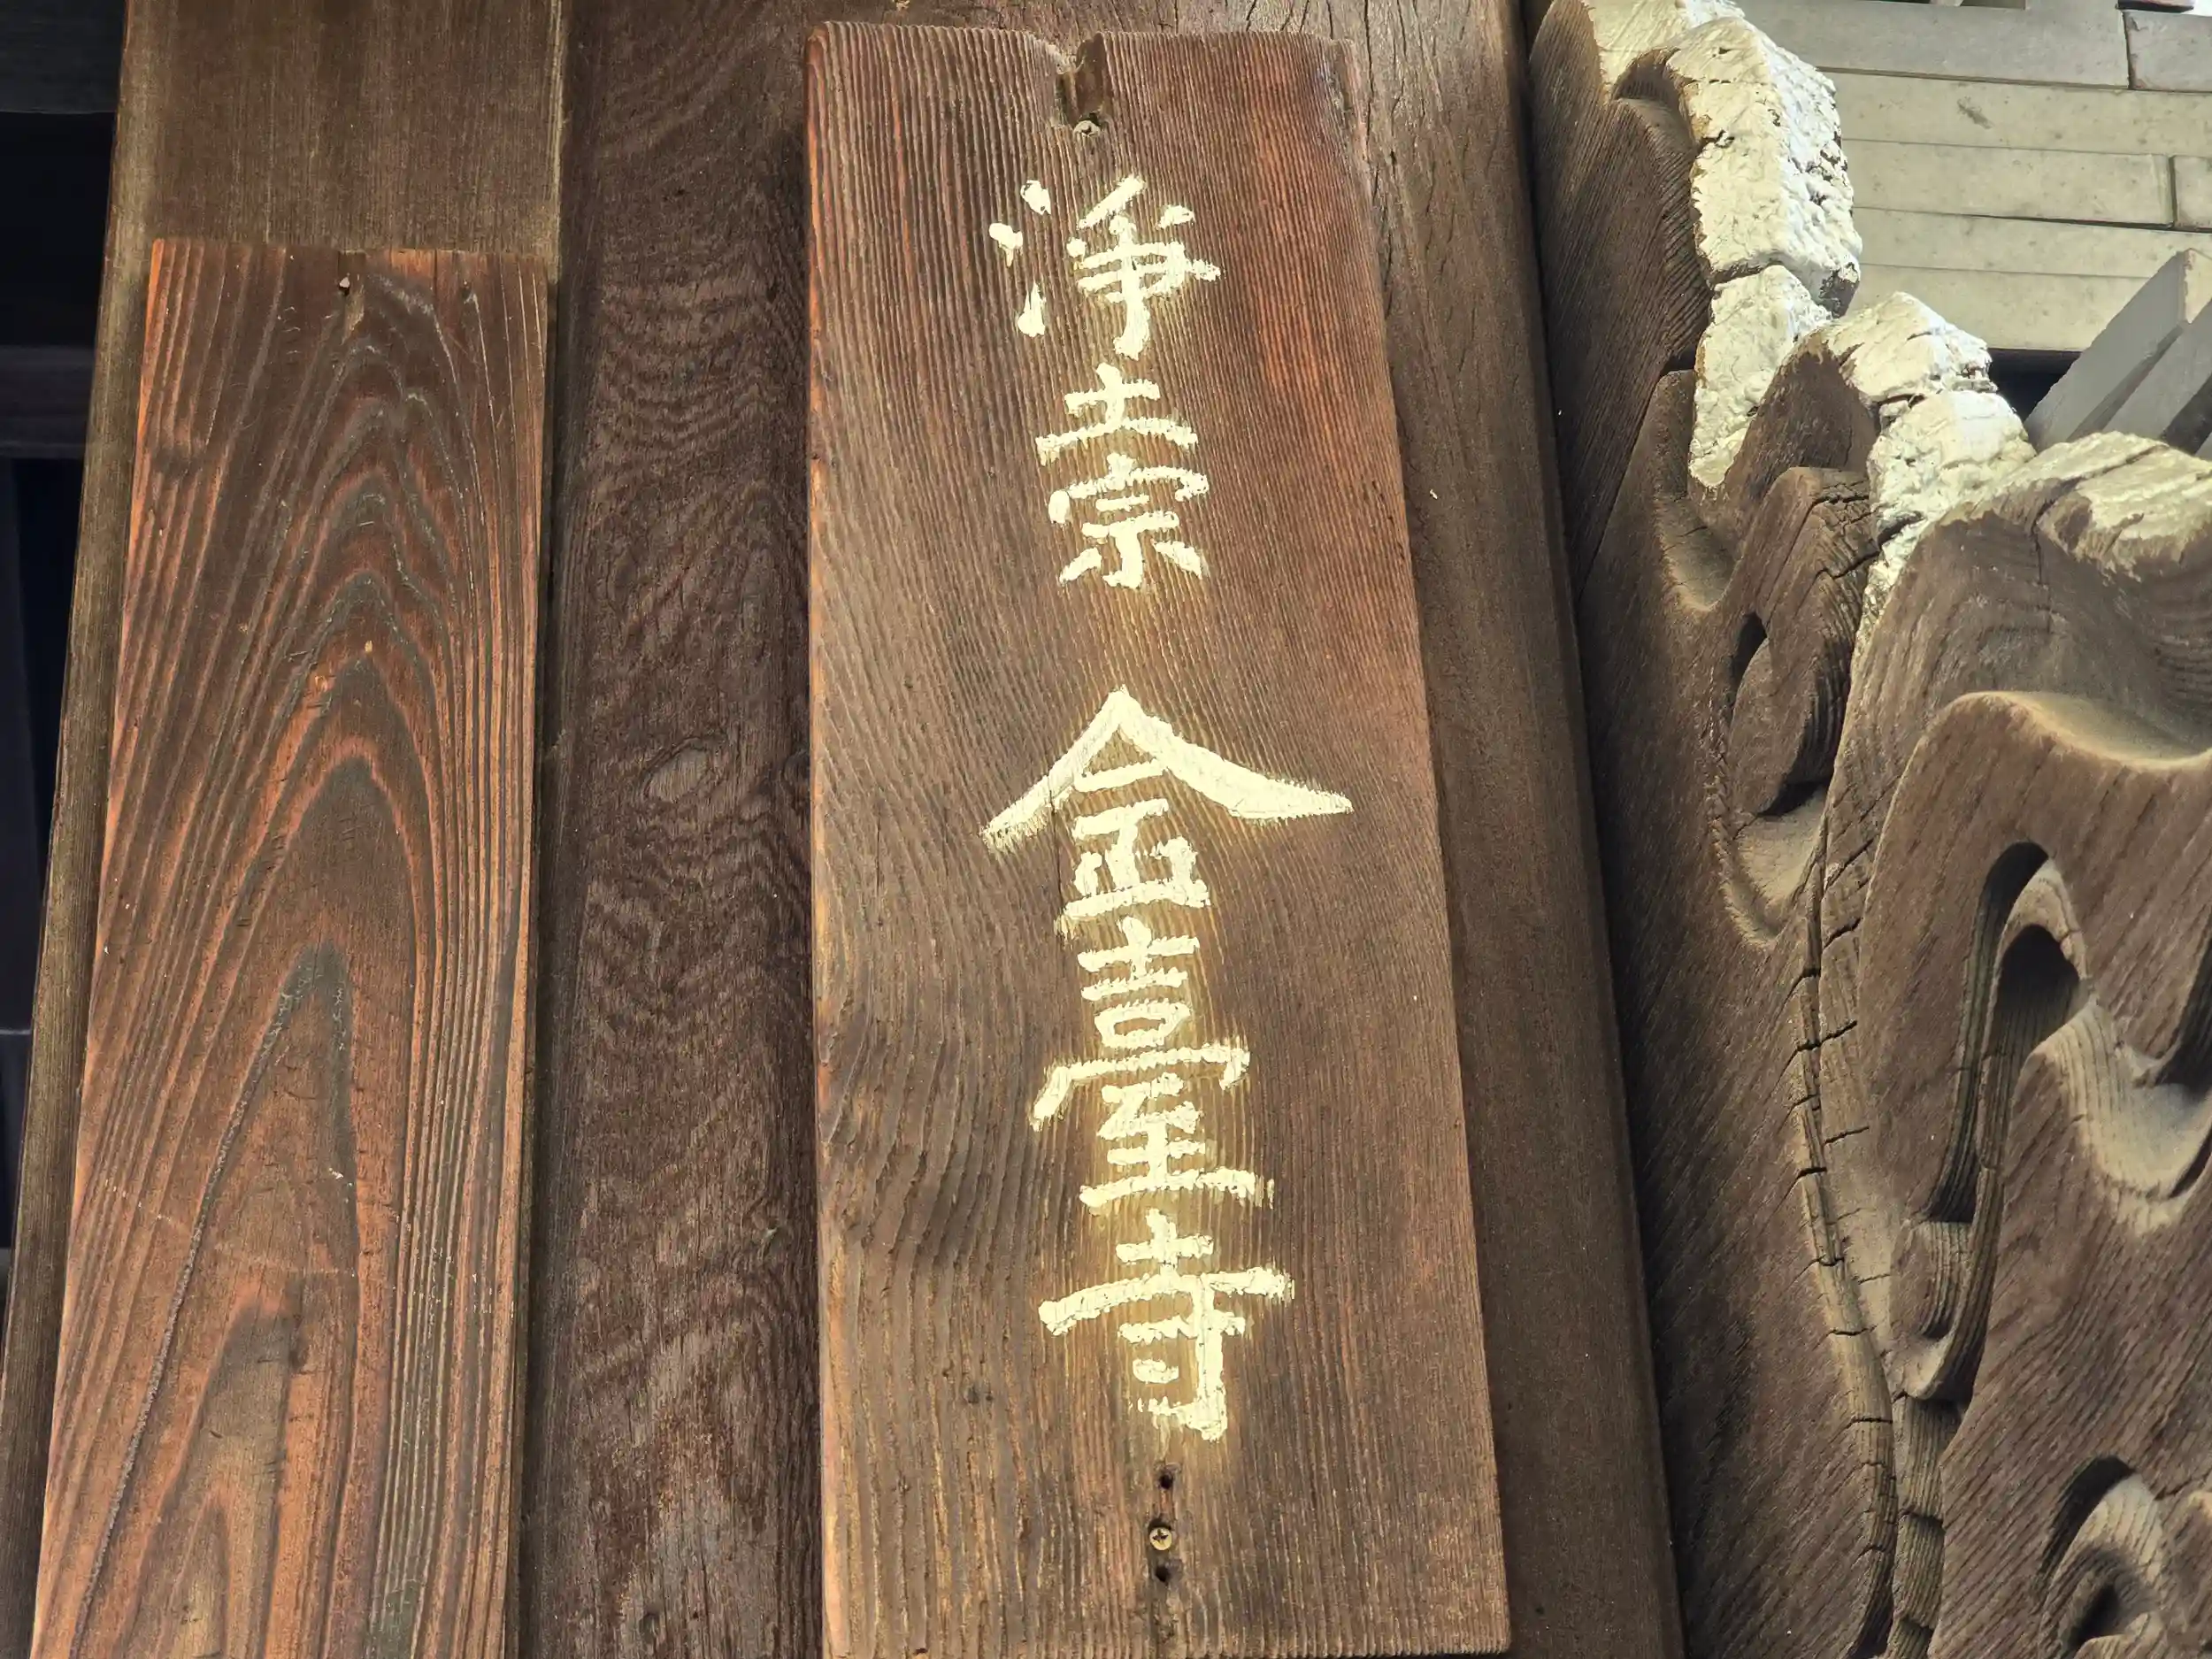 淨土宗 金臺寺